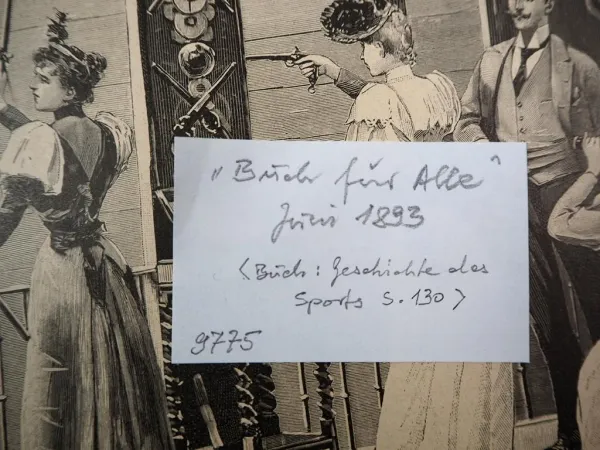 „Buch für Alle“
Juni 1893
(Buch: Geschichte des
Sports S. 130)
9775